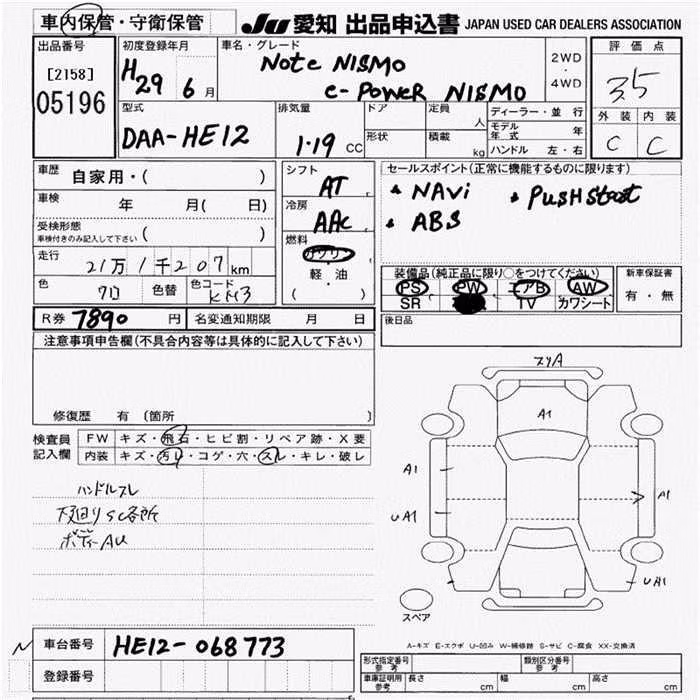 車内保管・守衛保管
JU 愛知 出品申込書 JAPAN USED CAR DEALERS ASSOCIATION
出品番号
[2158]
05196
初度登録年月
H29 6月
車名・グレード
Note NISMO
e-Power NISMO
2WD
・
4WD
評価点
3.5
外装 内装
C C
型式
DAA-HE12
排気量
1.19 CC
ドア
形状
定員
人
積載
kg
ディーラー・並行
モデル年式 年
ハンドル 左・右
車歴
自家用・( )
車検
年 月( 日)
受検形態
車検付きのみ記入して下さい ( )
走行
21万1千207km
色
色替
色コード
シフト
AT
冷房
AAC
燃料
ガソリン
軽・油
( )
セールスポイント(正常に機能するものに限ります)
・NAVi ・PusHStart
・ABS
装備品(純正品に限り○をつけてください)
PS PW エアB AW
SR TV カワシート
新車保証書
有・無
R券 7890 円 名変通知期限 月 日
後日品
注意事項申告欄(不具合内容等は具体的に記入して下さい)
修復歴 有〔箇所 〕
検査員
記入欄
FW キズ・飛石・ヒビ割・リペア跡・X要
内装 キズ・汚レ・コゲ・穴・スレ・キレ・破レ
ハンドルスレ
下廻りSC各所
ボディAU
スリA
A1
A1
UA1
A1
UA1
スペア
A-キズ E-エクボ U-凹み W-補修跡 S-サビ C-腐食 XX-交換済
N
車台番号 HE12-068773
登録番号
形式指定番号
参考
類別区分番号
参考
車庫証明用
参考
長さ cm 幅 cm 高さ cm